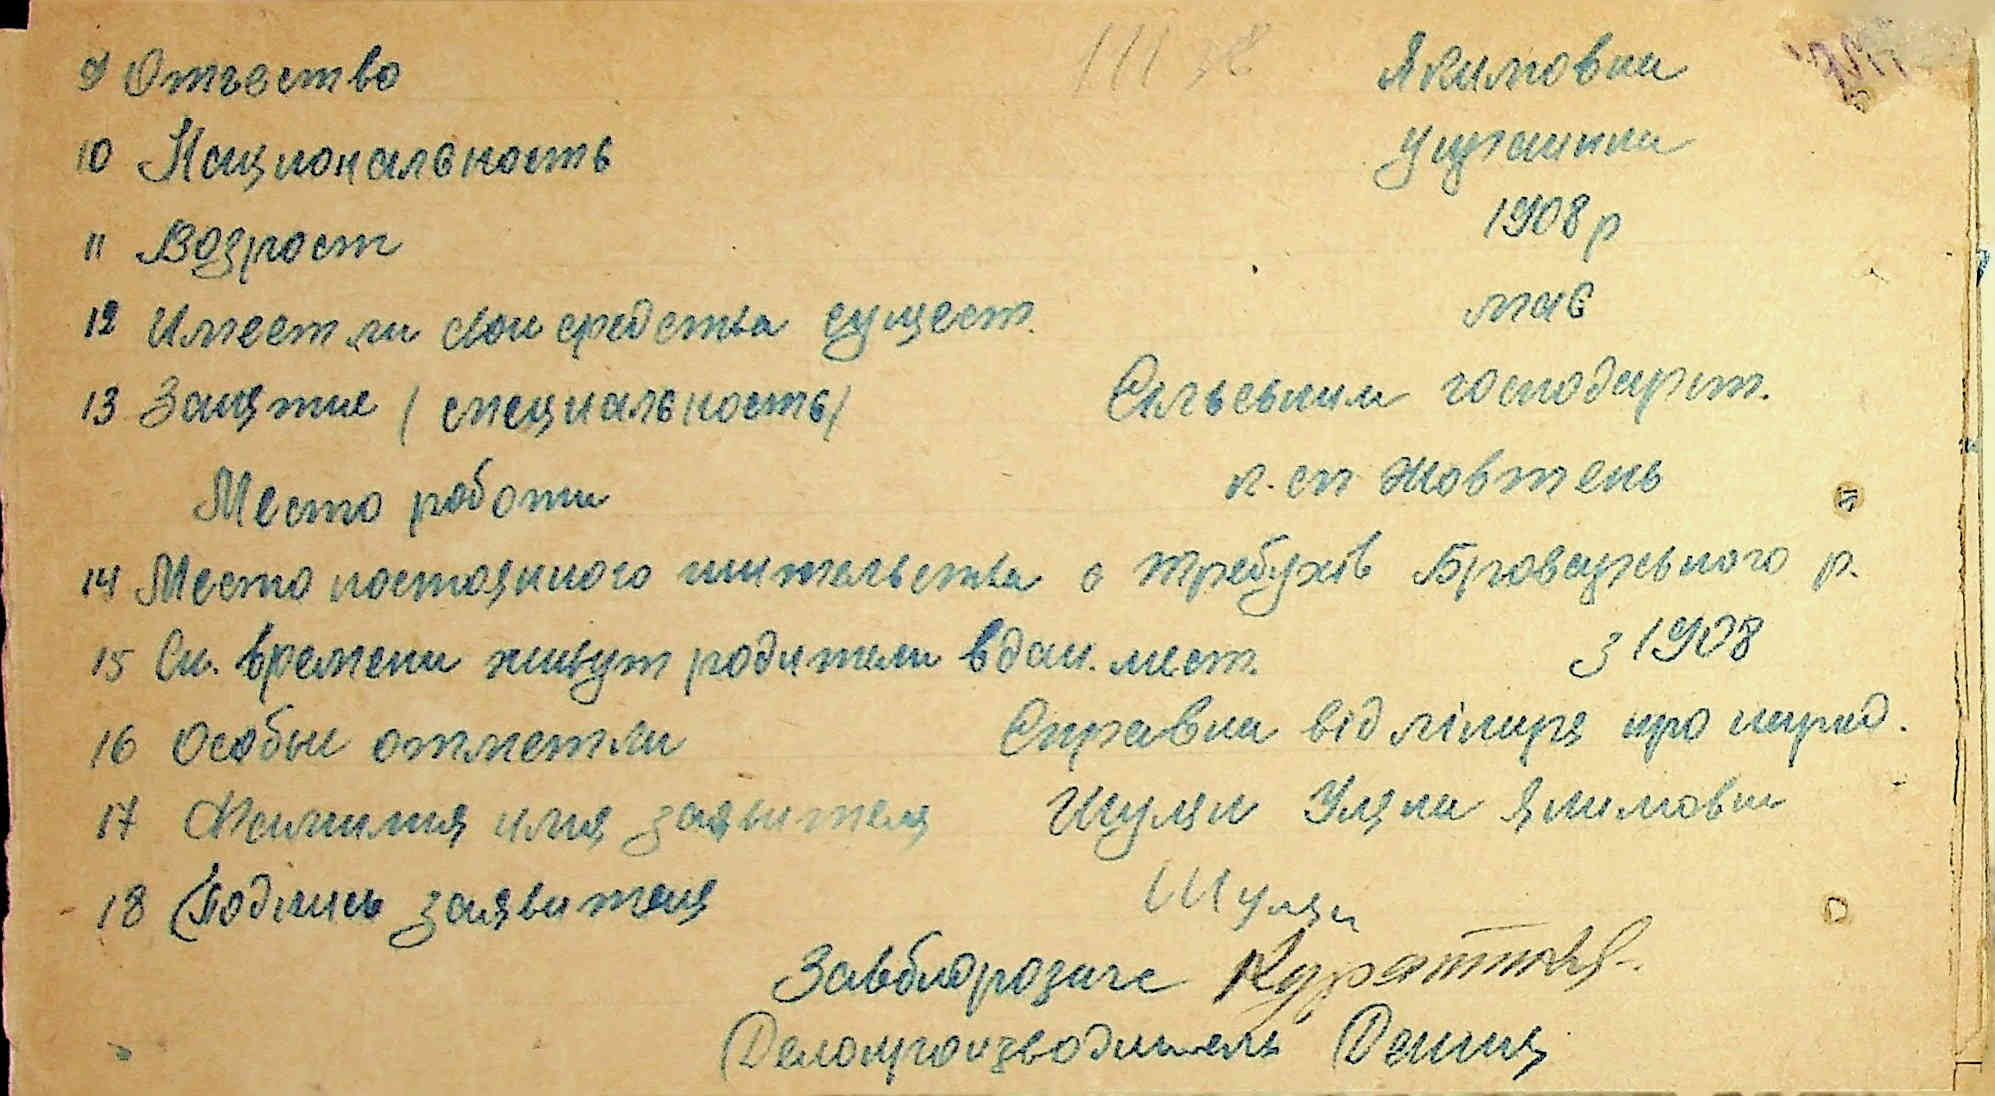 9 Отчество Якимовна
10 Национальность Украинка
11 Возрост 1908 р
12 Имеет ли свои средства сущест. має
13 Занятие (специальность) Сільським господарст.
Место роботи к. сп Жовтень
14 Место постоянного жительства с Требухів Броварського р.
15 Ск. времени живут родители в дан. мест. з 1908
16 Особые отметки Справка від лікаря про народ.
17 Фамилия имя заявителя Шуляк Уляна Якимовна
18 Подпись заявителя Шуляк
Завбюрозагс
Делопроизводитель